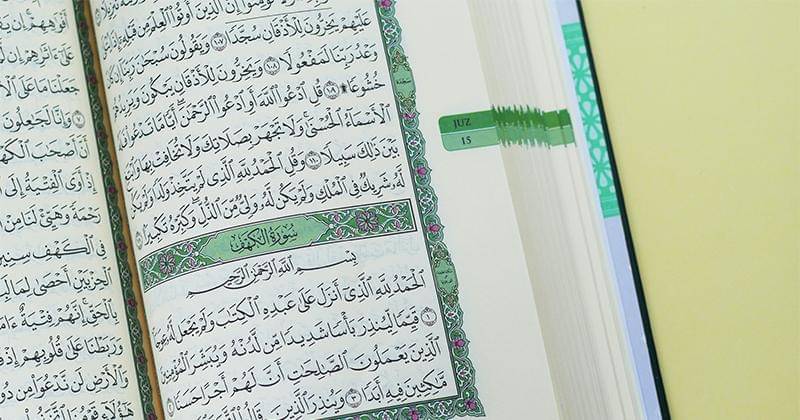 تُؤْمِنُوٓا۟ إِنَّ ٱلَّذِينَ أُوتُوا۟ ٱلْعِلْمَ مِن قَبْلِهِۦٓ
عَلَيْهِمْ يَخِرُّونَ لِلْأَذْقَانِ سُجَّدًا ١٠٧ وَيَقُولُونَ سُبْحَٰنَ رَبِّنَآ إِن كَانَ
وَعْدُ رَبِّنَا لَمَفْعُولًا ١٠٨ وَيَخِرُّونَ لِلْأَذْقَانِ يَبْكُونَ وَيَزِيدُهُمْ
خُشُوعًا ١٠٩ قُلِ ٱدْعُوا۟ ٱللَّهَ أَوِ ٱدْعُوا۟ ٱلرَّحْمَٰنَ أَيًّا مَّا تَدْعُوا۟ فَلَهُ
ٱلْأَسْمَآءُ ٱلْحُسْنَىٰ وَلَا تَجْهَرْ بِصَلَاتِكَ وَلَا تُخَافِتْ بِهَا وَٱبْتَغِ
بَيْنَ ذَٰلِكَ سَبِيلًا ١١٠ وَقُلِ ٱلْحَمْدُ لِلَّهِ ٱلَّذِى لَمْ يَتَّخِذْ وَلَدًا وَلَمْ يَكُن
لَّهُۥ شَرِيكٌ فِى ٱلْمُلْكِ وَلَمْ يَكُن لَّهُۥ وَلِىٌّ مِّنَ ٱلذُّلِّ وَكَبِّرْهُ تَكْبِيرًا
سُورَةُ الكَهْفِ
بِسْمِ ٱللَّهِ ٱلرَّحْمَٰنِ ٱلرَّحِيمِ
ٱلْحَمْدُ لِلَّهِ ٱلَّذِىٓ أَنزَلَ عَلَىٰ عَبْدِهِ ٱلْكِتَٰبَ وَلَمْ يَجْعَل لَّهُۥ عِوَجَا
١ قَيِّمًا لِّيُنذِرَ بَأْسًا شَدِيدًا مِّن لَّدُنْهُ وَيُبَشِّرَ ٱلْمُؤْمِنِينَ
ٱلَّذِينَ يَعْمَلُونَ ٱلصَّٰلِحَٰتِ أَنَّ لَهُمْ أَجْرًا حَسَنًا ٢
مَّٰكِثِينَ فِيهِ أَبَدًا ٣ وَيُنذِرَ ٱلَّذِينَ قَالُوا۟
JUZ
15
أَفْوَٰهِهِمْ إِن
عَلَىٰٓ ءَاثَٰرِهِمْ إِن
جَعَلْنَا مَا عَلَى ٱلْ
وَإِنَّا لَجَٰعِلُونَ
أَنَّ أَصْحَٰبَ ٱلْكَهْ
إِذْ أَوَى ٱلْفِتْيَةُ إِلَى
رَحْمَةً وَهَيِّئْ لَنَا مِنْ
فِى ٱلْكَهْفِ سِنِينَ
ٱلْحِزْبَيْنِ أَحْصَىٰ لِمَا لَبِ
بِٱلْحَقِّ إِنَّهُمْ فِتْيَةٌ ءَامَ
وَرَبَطْنَا عَلَىٰ قُلُوبِهِمْ إِذْ
وَٱلْأَرْضِ لَن نَّدْعُوَا۟ مِن
هَٰٓؤُلَآءِ قَوْمُنَا